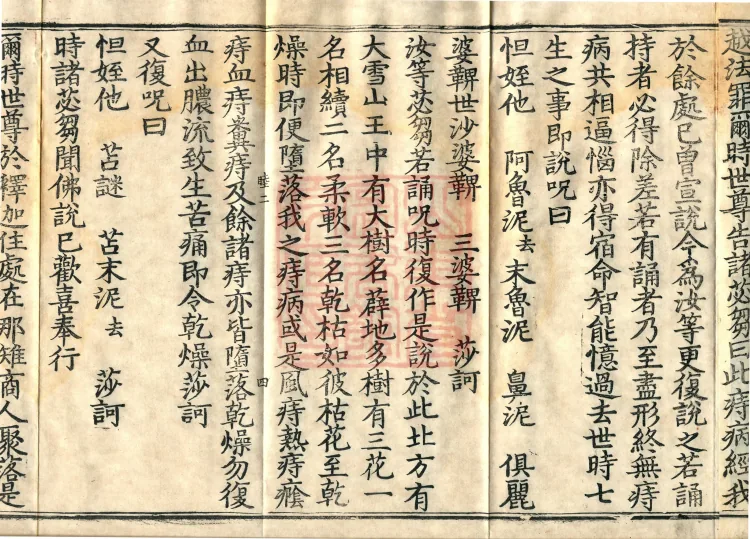 越法罪爾時世尊告諸苾芻曰此痔病經我
於餘處已曾宣說今為汝等更復說之若誦
持者必得除差若有誦者乃至盡形終無痔
病共相逼惱亦得宿命智能憶過去世時七
生之事即說呪曰
怛姪他 阿魯泥去 末魯泥 鼻泥 俱麗
婆鞞世沙婆鞞 三婆鞞 莎訶
汝等苾芻若誦呪時復作是說於此北方有
大雪山王中有大樹名薜地多樹有三花一
名相續二名柔軟三名乾枯如彼枯花至乾
燥時即便墮落我之痔病或是風痔熱痔癊
睦二 四
痔血痔糞痔及餘諸痔亦皆墮落乾燥勿復
血出膿流致生苦痛即令乾燥莎訶
又復呪曰
怛姪他 苫謎 苫末泥去 莎訶
時諸苾芻聞佛說已歡喜奉行
爾時世尊於釋迦住處在那雉商人聚落是